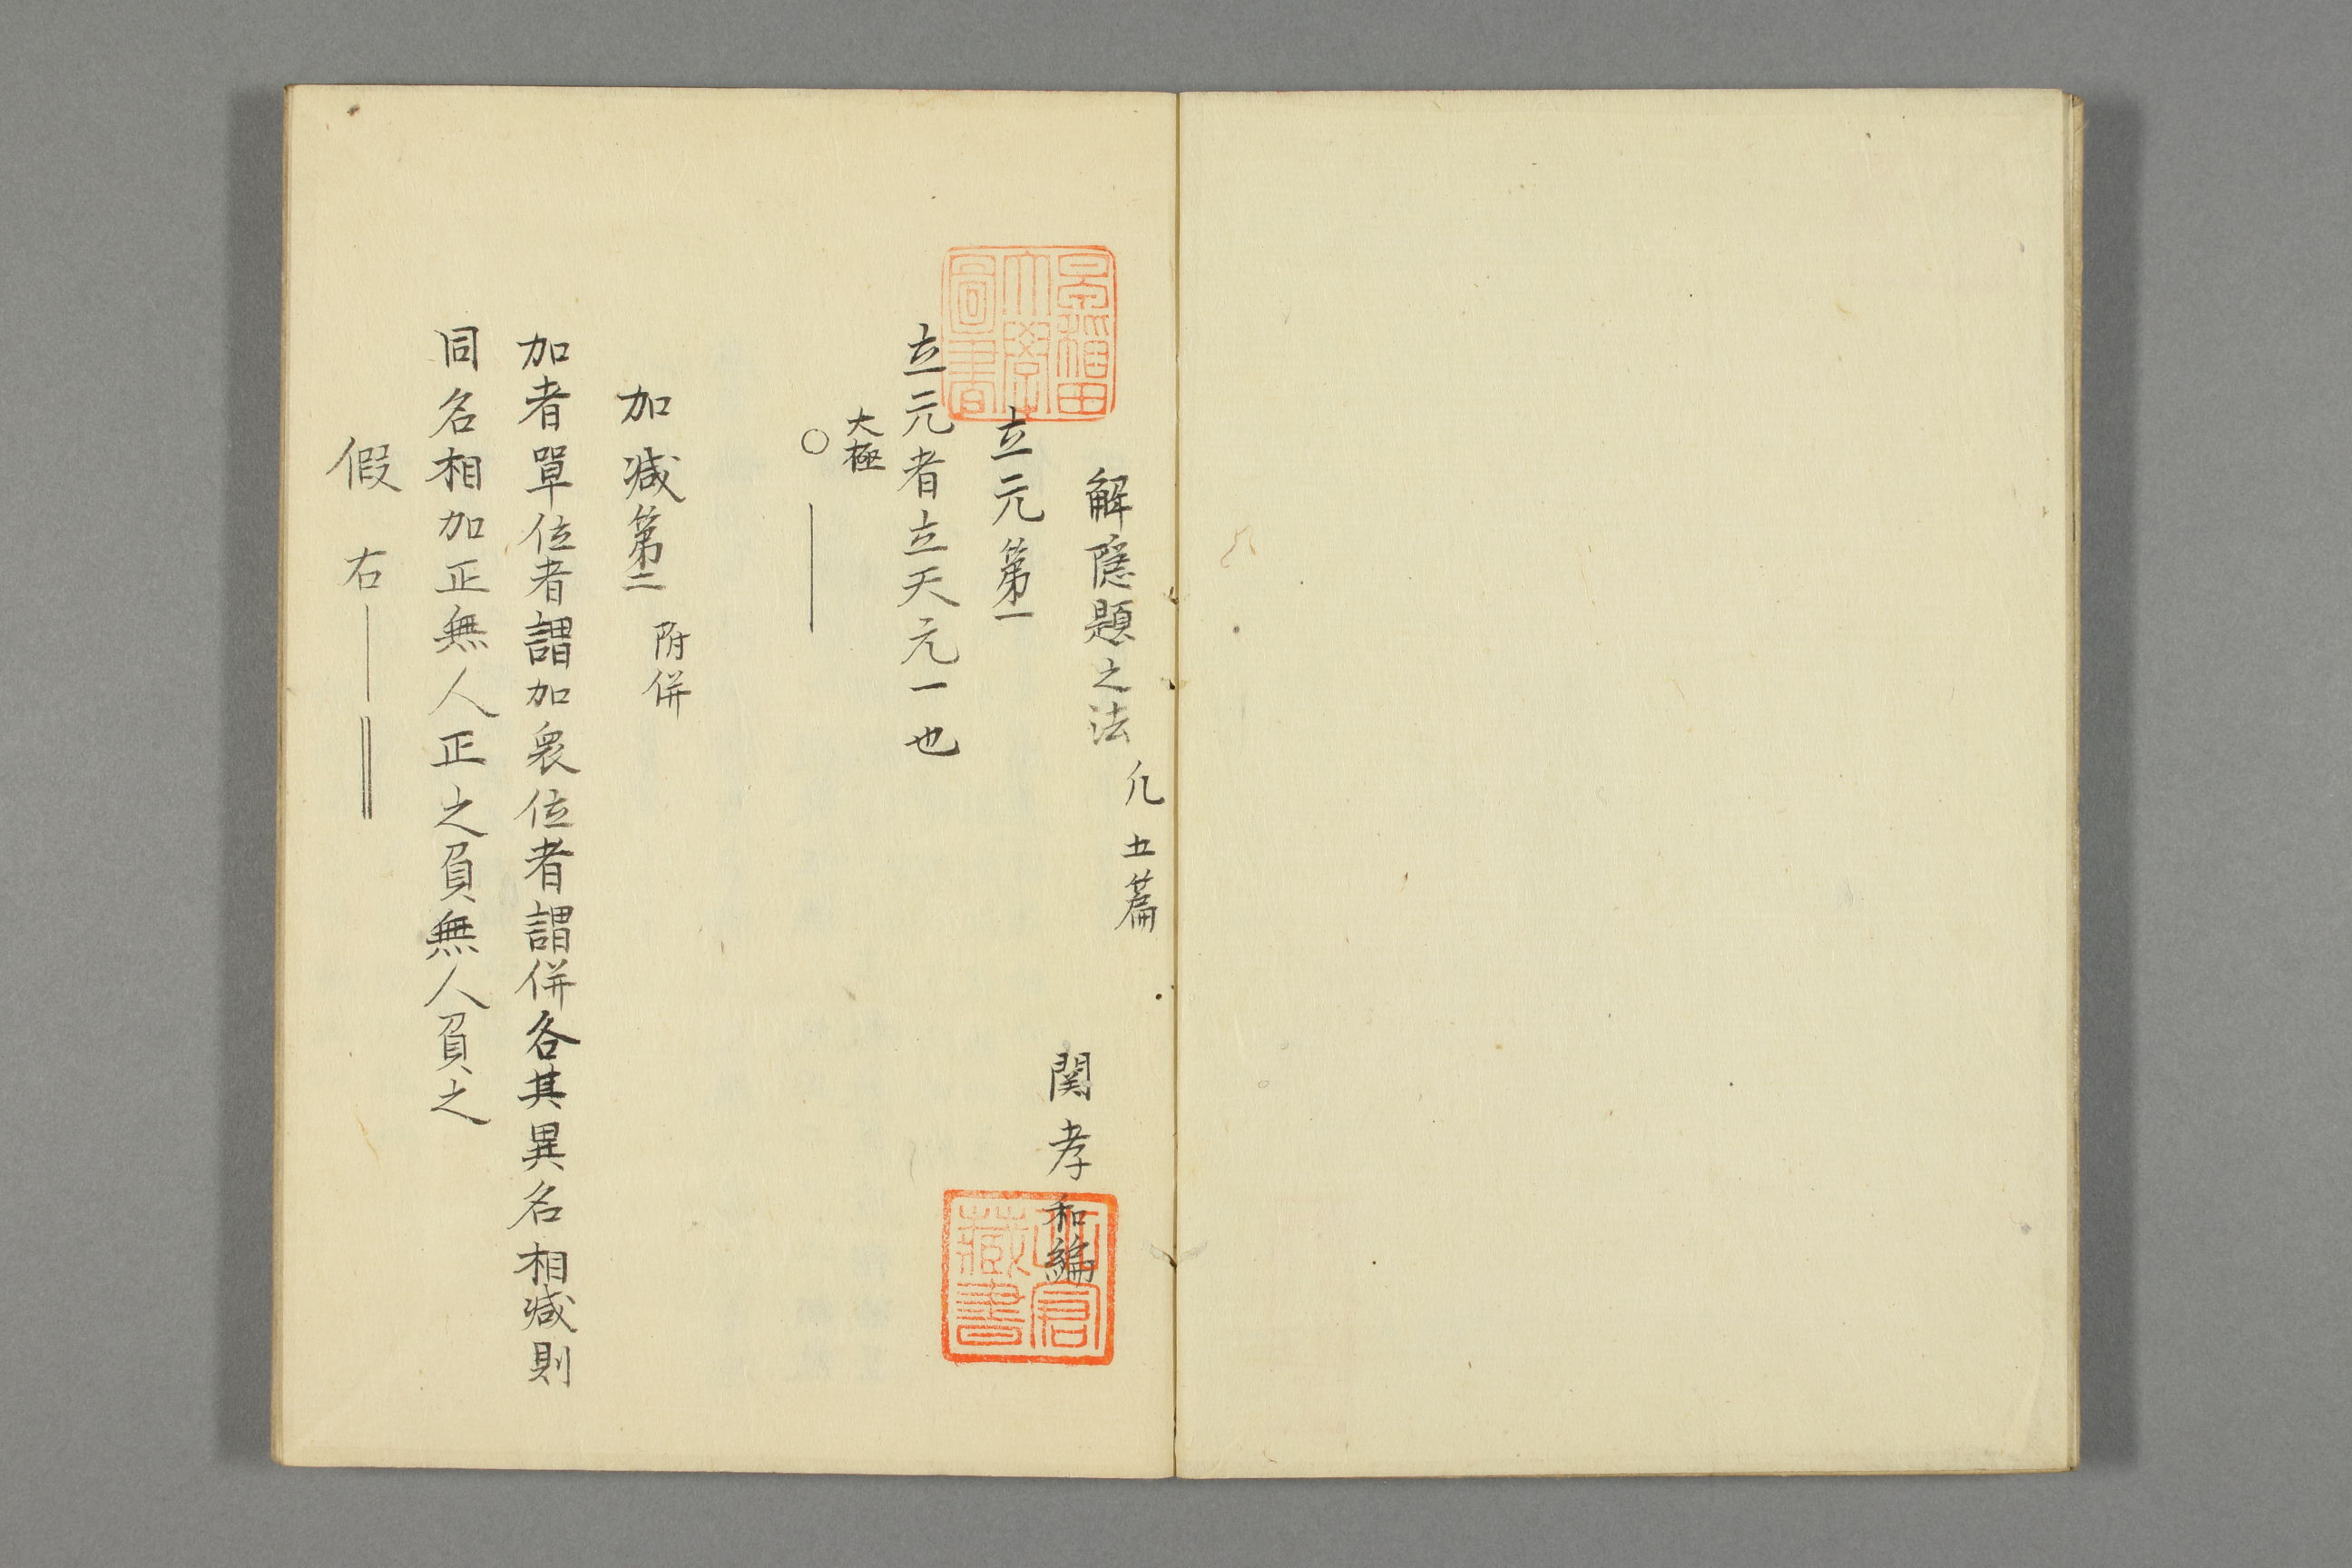 解隠題之法 凢五篇
関孝和編
立元第一
立元者立天元一也
大極
○
加減第二 附併
加者單位者謂加衆位者謂併各其異名相減則
同名相加正無人正之負無人負之
假右
早稲田大學圖書
藏書